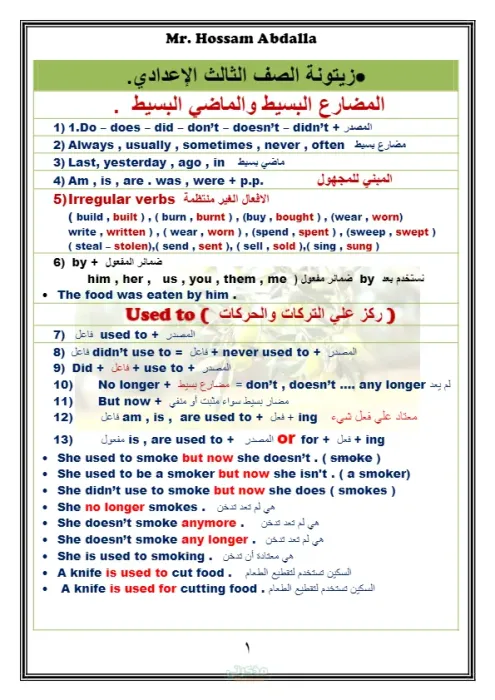 Mr. Hossam Abdalla
•زيتونة الصف الثالث الإعدادي.
المضارع البسيط والماضي البسيط .
1) 1.Do – does – did – don't – doesn't – didn't + المصدر
2) Always , usually , sometimes , never , often مضارع بسيط
3) Last, yesterday , ago , in ماضي بسيط
4) Am , is , are . was , were + p.p. المبني للمجهول
5)Irregular verbs الافعال الغير منتظمة
( build , built ) , ( burn , burnt ) , (buy , bought ) , (wear , worn)
write , written ) , ( wear , worn ) , (spend , spent ) , (sweep , swept )
( steal – stolen),( send , sent ), ( sell , sold ),( sing , sung )
6) by + ضمائر المفعول
نستخدم بعد by ضمائر مفعول ( him , her , us , you , them , me
• The food was eaten by him .
Used to ( ركز علي التركات والحركات )
7) فاعل used to + المصدر
8) فاعل didn't use to = فاعل + never used to + المصدر
9) Did + فاعل + use to + المصدر
10) No longer + مضارع بسيط = don't , doesn't .... any longer لم يعد
11) But now + مضار بسيط سواء مثبت أو منفي
12) فاعل am , is , are used to + فعل + ing معتاد علي فعل شيء
13) مفعول is , are used to + المصدر or for + فعل + ing
• She used to smoke but now she doesn't . ( smoke )
• She used to be a smoker but now she isn't . ( a smoker)
• She didn't use to smoke but now she does ( smokes )
• She no longer smokes . هي لم تعد تدخن
• She doesn't smoke anymore . هي لم تعد تدخن
• She doesn't smoke any longer . هي لم تعد تدخن
• She is used to smoking . هي معتادة أن تدخن
• A knife is used to cut food . السكين تستخدم لتقطيع الطعام
• A knife is used for cutting food . السكين تستخدم لتقطيع الطعام
١
مذكراتي